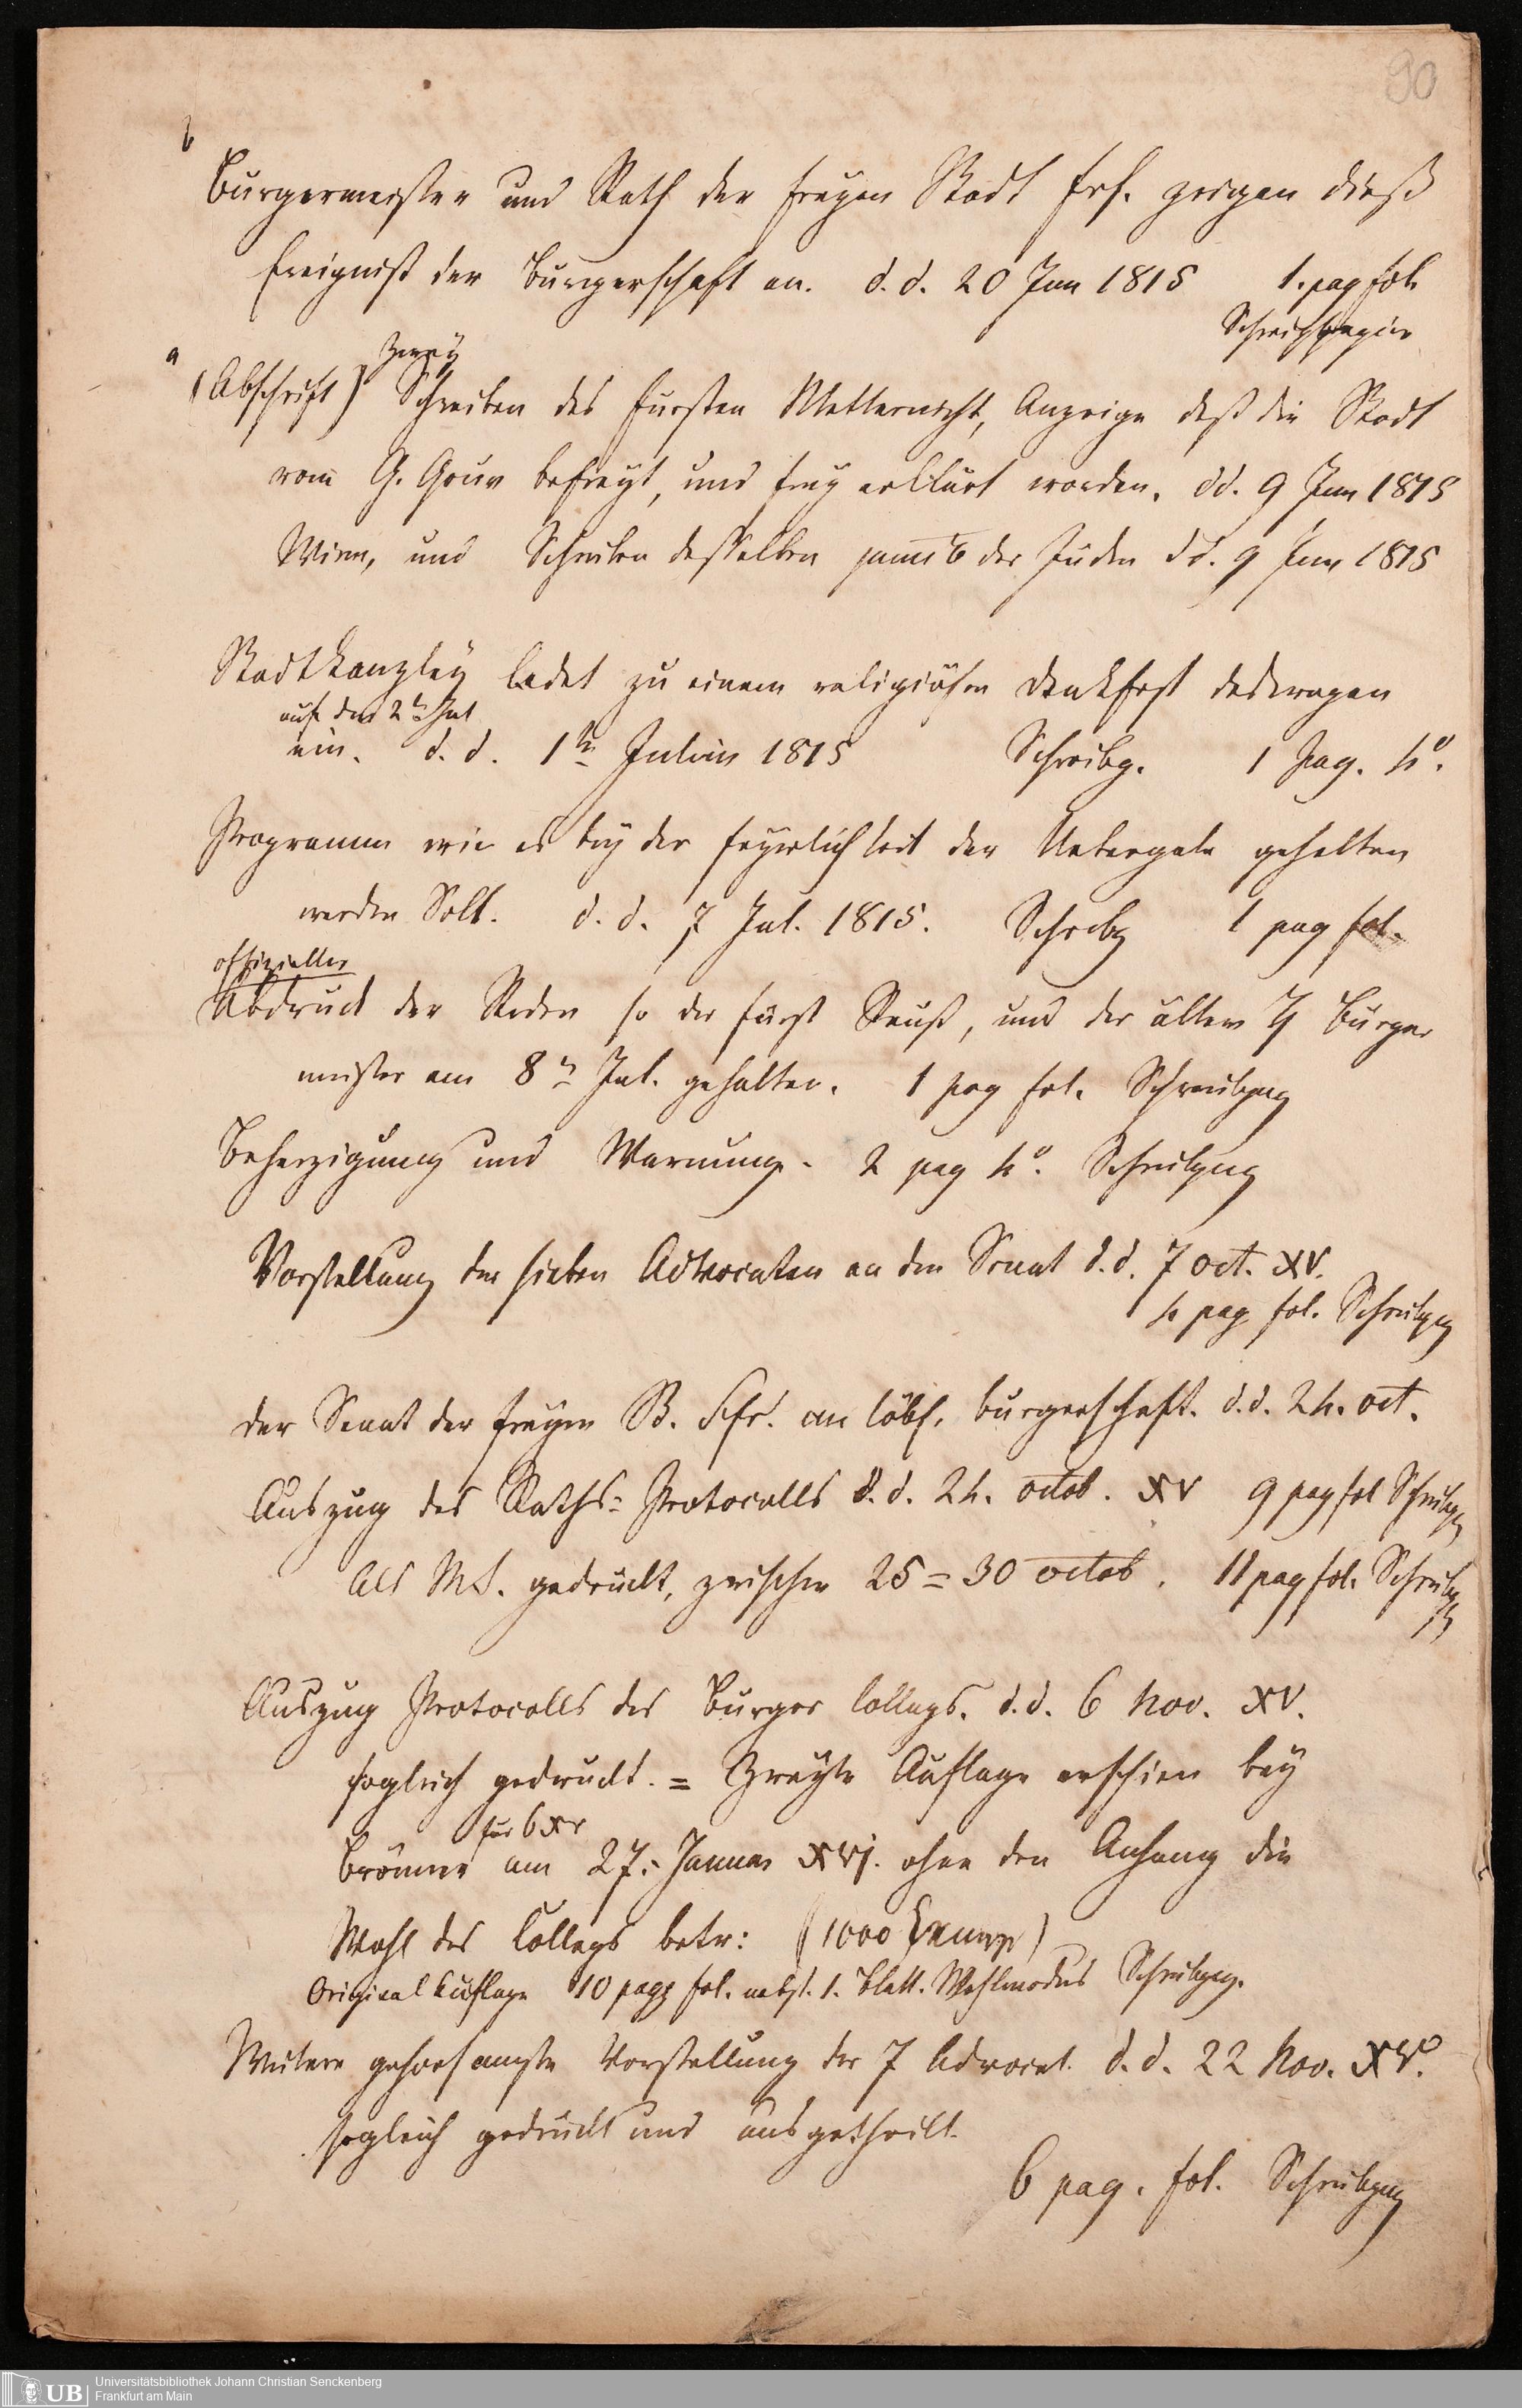 90
b
Burgermeister und Rath der freyen Stadt frf. zeigen dieß
Ereigniß der Burgerschaft an. d. d. 20 Jun 1815 1. pag fol.
Schreibpapier
a
zwey
(Abschrift) Schreiben des Fursten Metternich, Anzeige daß die Stadt
vom G. Gouv befreyt, und frey erklärt worden. dd. 9 Jun 1815
Wien, und Schreiben desselben der Juden dd. 9 Jun 1815
Stadtkanzley ladet zu einem religiösen Dankfest deswegen
auf den 2t Jul
ein. d. d. 1ten Julius 1815 Schreibp. 1 Pag. 4o.
Programm wie es bey der feyerlichkeit der Uebergabe gehalten
werden Soll. d. d. 7 Jul. 1815. Schrbp 1 pag fol.
offizieller
Abdruck der Reden so der fürst Reuß, und der ältere H Burger
meister am 8n Jul. gehalten. 1 pag fol. Schreibpap
Beherzigung und Warnung. 2 pag 4o. Schreibpap
Vorstellung der sieben Advocaten an den Senat d. d. 7 oct. XV.
4 pag fol. Schreibpap
der Senat der freyen St. Ffr. an löbl. burgerschaft. d. d. 24. oct.
Auszug des Raths=Protocolls d. d. 24. octob. XV 9 pag fol Schreibp
als MS. gedruckt, zwischen 25=30 octob. 11 pag fol. Schreibp
Auszug Protocolls des Burger Collegs. d. d. 6 Nov. XV.
sogleich gedruckt. = Zweyte Auflage erschien bey
für 6 xr
Brönner am 27. Januar XVj. ohne den Anhang die
Wahl des Collegs betr: (1000 Exempl)
Original Auflage 10 pagg fol. nebst. 1. Blatt. Wahlmodus Schreibpap.
Weitere gehorsamste Vorstellung der 7 Advocat. d. d. 22 Nov. XV.
sogleich gedruckt und ausgetheilt.
6 pag. fol. Schreibpap
Universitätsbibliothek Johann Christian Senckenberg
UB Frankfurt am Main